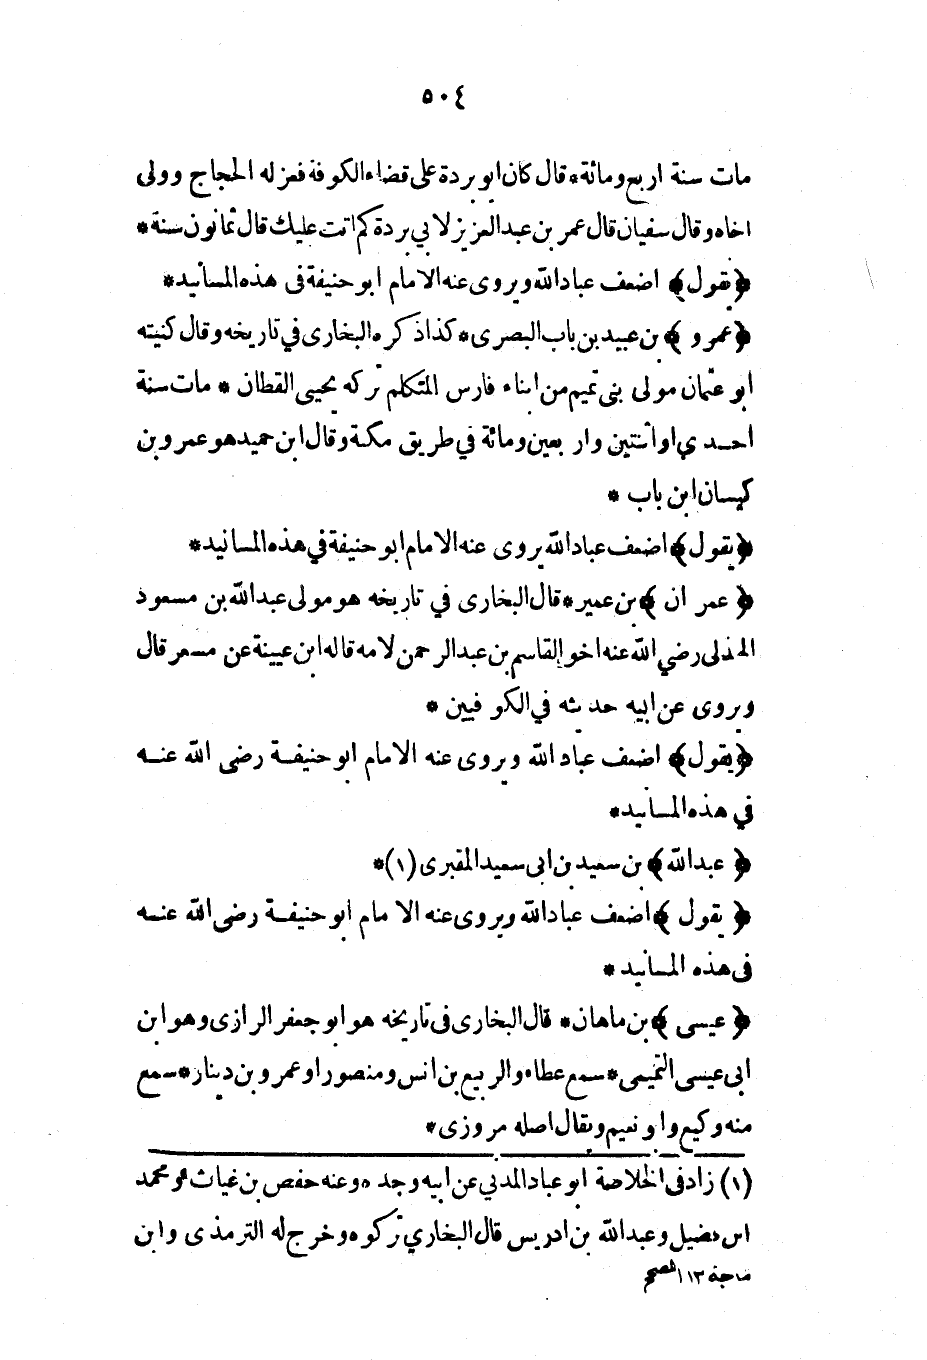 ٥٠٤
مات سنة اربع ومائة * قال كان ابو بردة على قضاء الكوفة فعزله الحجاج وولى
اخاه وقال سفيان قال عمر بن عبد العزيز لابي بردة كم اتت عليك قال ثمانون سنة *
﴿يقول﴾ اضعف عباد الله ويروى عنه الامام ابو حنيفة فى هذه المسانيد *
﴿عمرو﴾ بن عبيد بن باب البصرى * كذا ذكره البخارى في تاريخه وقال كنيته
ابو عثمان مولى بنى تميم من ابناء فارس المتكلم تركه يحيى القطان * مات سنة
احدى او اثنتين واربعين ومائة في طريق مكة وقال ابن حميد هو عمرو بن
كيسان ابن باب *
﴿يقول﴾ اضعف عباد الله يروى عنه الامام ابو حنيفة في هذه المسانيد *
﴿عمران﴾ بن عمير * قال البخارى في تاريخه هو مولى عبد الله بن مسعود
الهذلى رضي الله عنه اخو القاسم بن عبد الرحمن لامه قاله ابن عيينة عن مسعر قال
ويروى عن ابيه حديثه في الكوفيين *
﴿يقول﴾ اضعف عباد الله ويروى عنه الامام ابو حنيفة رضى الله عنه
في هذه المسانيد *
﴿عبد الله﴾ بن سعيد بن ابى سعيد المقبرى (١) *
﴿يقول﴾ اضعف عباد الله ويروى عنه الامام ابو حنيفة رضى الله عنه
فى هذه المسانيد *
﴿عيسى﴾ بن ماهان * قال البخارى فى تاريخه هو ابو جعفر الرازى وهو ابن
ابى عيسى التميمى * سمع عطاء والربيع بن انس ومنصورا وعمرو بن دينار * سمع
منه وكيع وابو نعيم ويقال اصله مروزى *
(١) زاد فى الخلاصة ابو عباد المدني عن ابيه وجده وعنه حفص بن غياث ومحمد
ابن فضيل وعبد الله بن ادريس قال البخاري تركوه وخرج له الترمذى وابن
ماجة ١١٣ المصحح